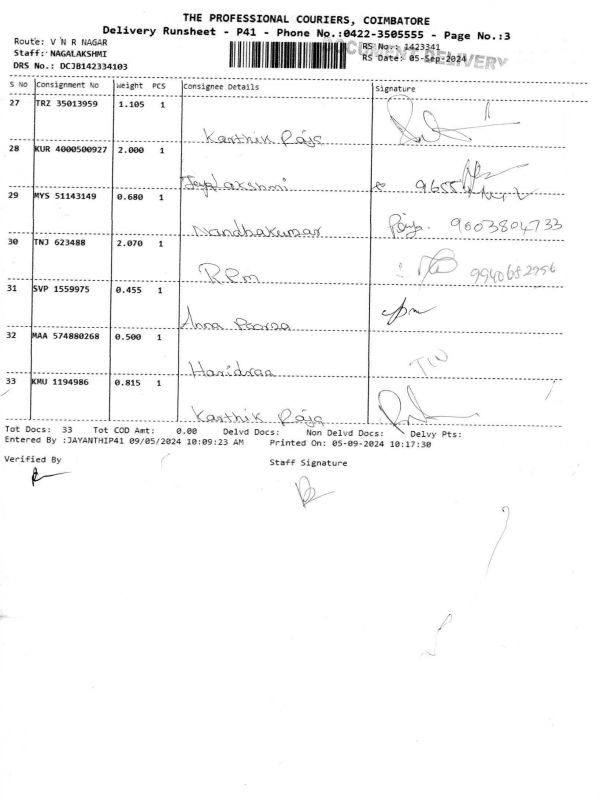 THE PROFESSIONAL COURIERS, COIMBATORE
Delivery Runsheet - P41 - Phone No.:0422-3505555 - Page No.:3
Route: V N R NAGAR RS No.: 1423341
Staff: NAGALAKSHMI RS Date: 05-Sep-2024
DOCUMENT DELIVERY
DRS No.: DCJB142334103
S No Consignment No Weight PCS Consignee Details Signature
27 TRZ 35013959 1.105 1
Karthik Raja
28 KUR 4000500927 2.000 1
Jayalakshmi 9655
29 MYS 51143149 0.680 1
Nandhakumar Priya. 9003804733
30 TNJ 623488 2.070 1
RPM 9940682956
31 SVP 1559975 0.455 1
Anna Poorna
32 MAA 574880268 0.500 1
Haridran
33 KMU 1194986 0.815 1
Karthik Raja
Tot Docs: 33 Tot COD Amt: 0.00 Delvd Docs: Non Delvd Docs: Delvy Pts:
Entered By :JAYANTHIP41 09/05/2024 10:09:23 AM Printed On: 05-09-2024 10:17:30
Verified By Staff Signature